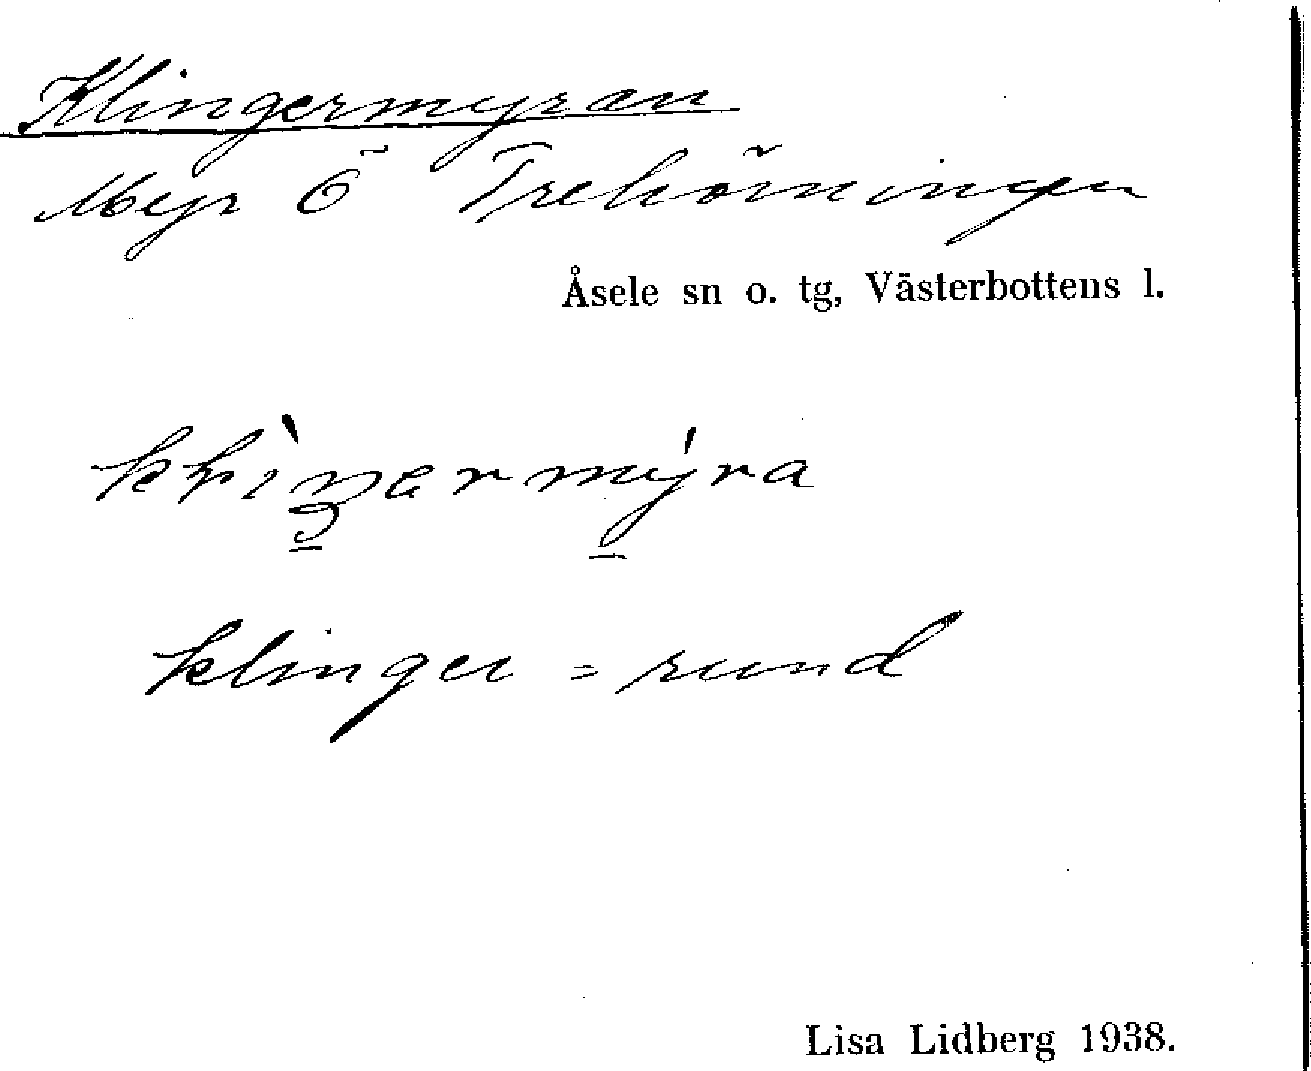 Klingermyran
Myr Ö Trehörningen
Åsele sn o. tg, Västerbottens l.
klinger = rund
Lisa Lidberg 1938.